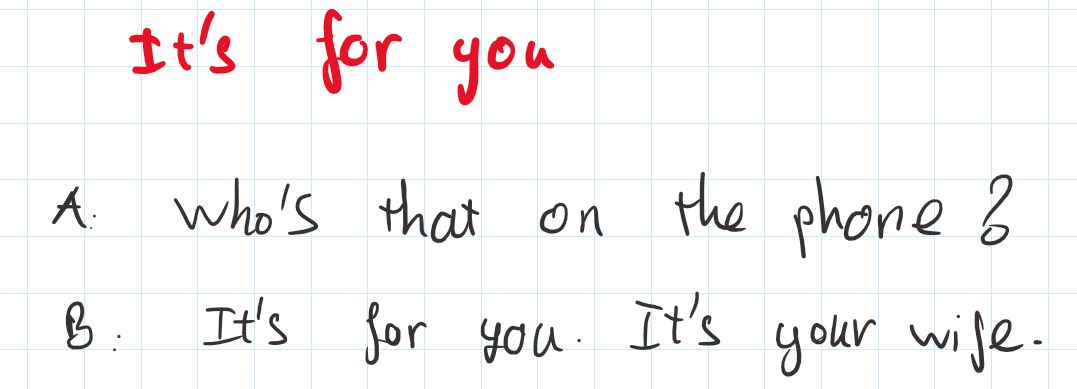 It's for you
A. Who's that on the phone?
B. It's for you. It's your wife.